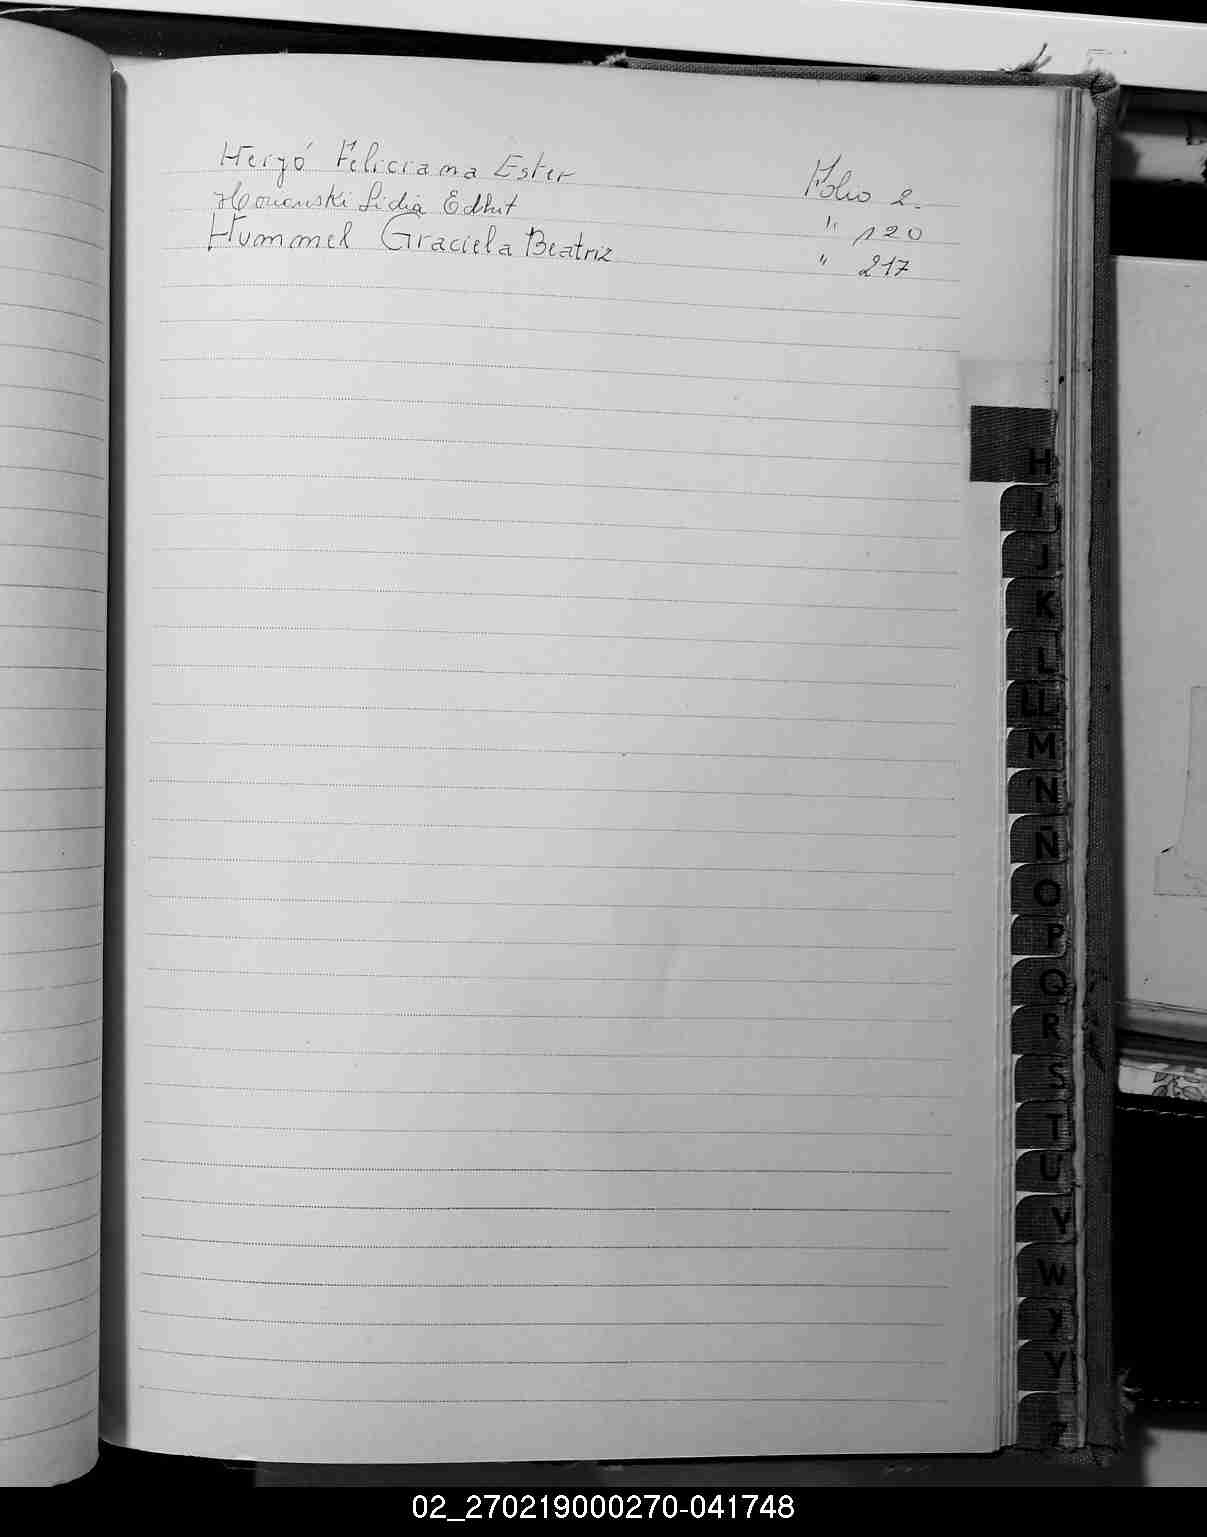 Hergó Feliciama Ester Folio 2.
Lidia Edhit " 120
Hummel Graciela Beatriz " 217
H
I
J
K
L
LL
M
N
Ñ
O
P
Q
R
S
T
U
V
W
Y
02_270219000270-041748